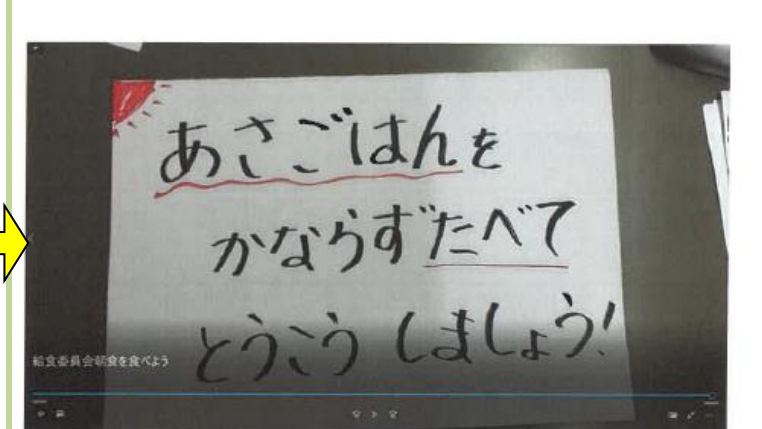 あさごはんを
かならずたべて
とうこうしましょう!
給食委員会朝食を食べよう